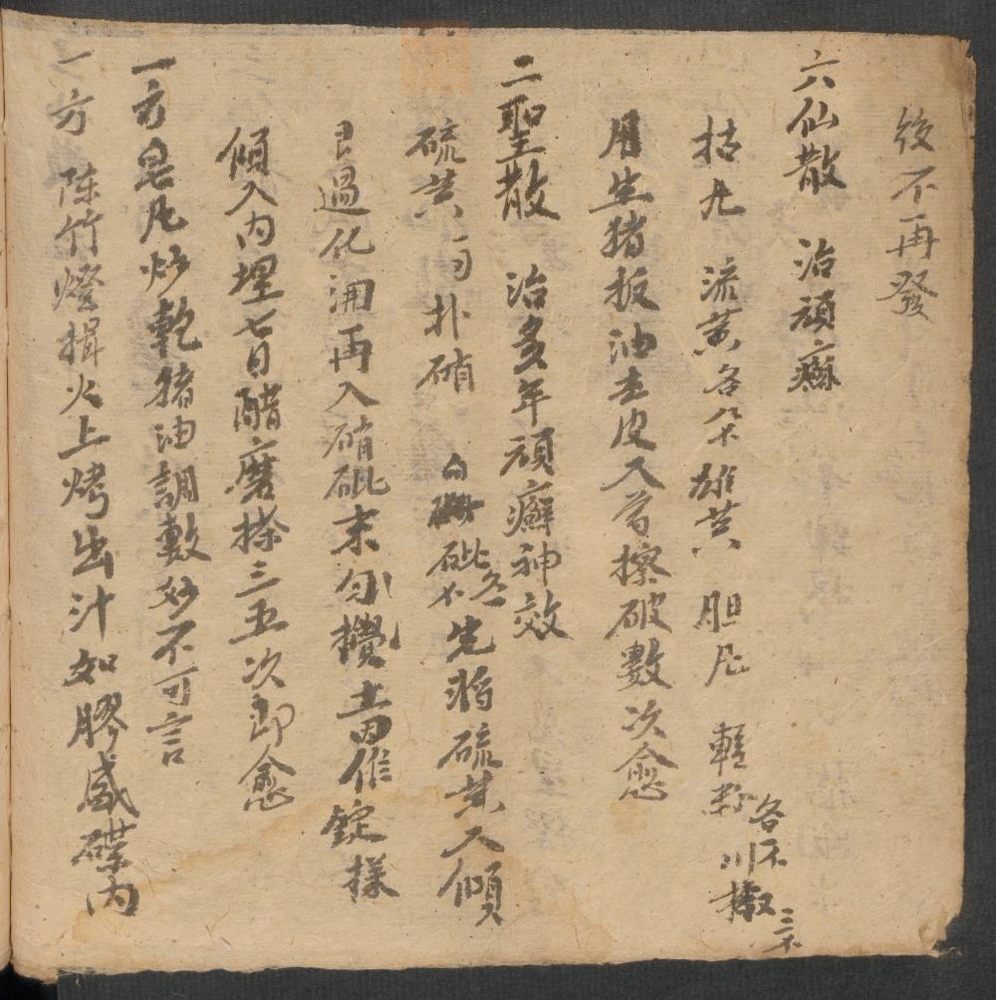 後不再發
六仙散 治頑癬
枯凡 流黄各 雄黄 胆凡 輕粉各 川椒三
用生猪板油去皮入 擦破數次愈
二聖散 治多年頑癬神效
硫黄 朴硝 白砒各 先將硫黄入傾
過化湧再入硝砒末匀攪 作錠樣
傾入內埋七日醋磨搽三五次即愈
一方皂凡炒乾猪油調敷妙不可言
一方 陈竹燈揖火上烤出汁如膠盛碟内